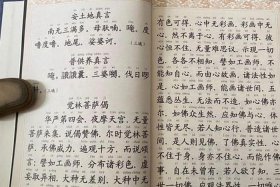 安土地真言
南无三满多。母驮喃。唵。度
噜度噜。地尾。娑婆诃。(三遍)
普供养真言
唵。誐誐曩。三婆嚩。伐日啰
斛。(三遍)
觉林菩萨偈
华严第四会。夜摩天宫。无量
菩萨来集。说偈赞佛。尔时觉林菩
萨。承佛威力。遍观十方。而说颂
言。譬如工画师。分布诸彩色。虚
妄取异相。大种无差别。大种中无
色可得。心中无彩画。彩画中无
心。然不离于心。有彩画可得。彼
心恒不住。无量难思议。示现一切
色。各各不相知。譬如工画师。不
能知自心。而由心故画。诸法性如
是。心如工画师。能画诸世间。五
蕴悉从生。无法而不造。如心佛亦
尔。如佛众生然。应知佛与心。体
性皆无尽。若人知心行。普造诸世
间。是人则见佛。了佛真实性。心
不住于身。身亦不住心。而能作佛
事。自在未曾有。若人欲了知。三
世一切佛。应观法界性。一切